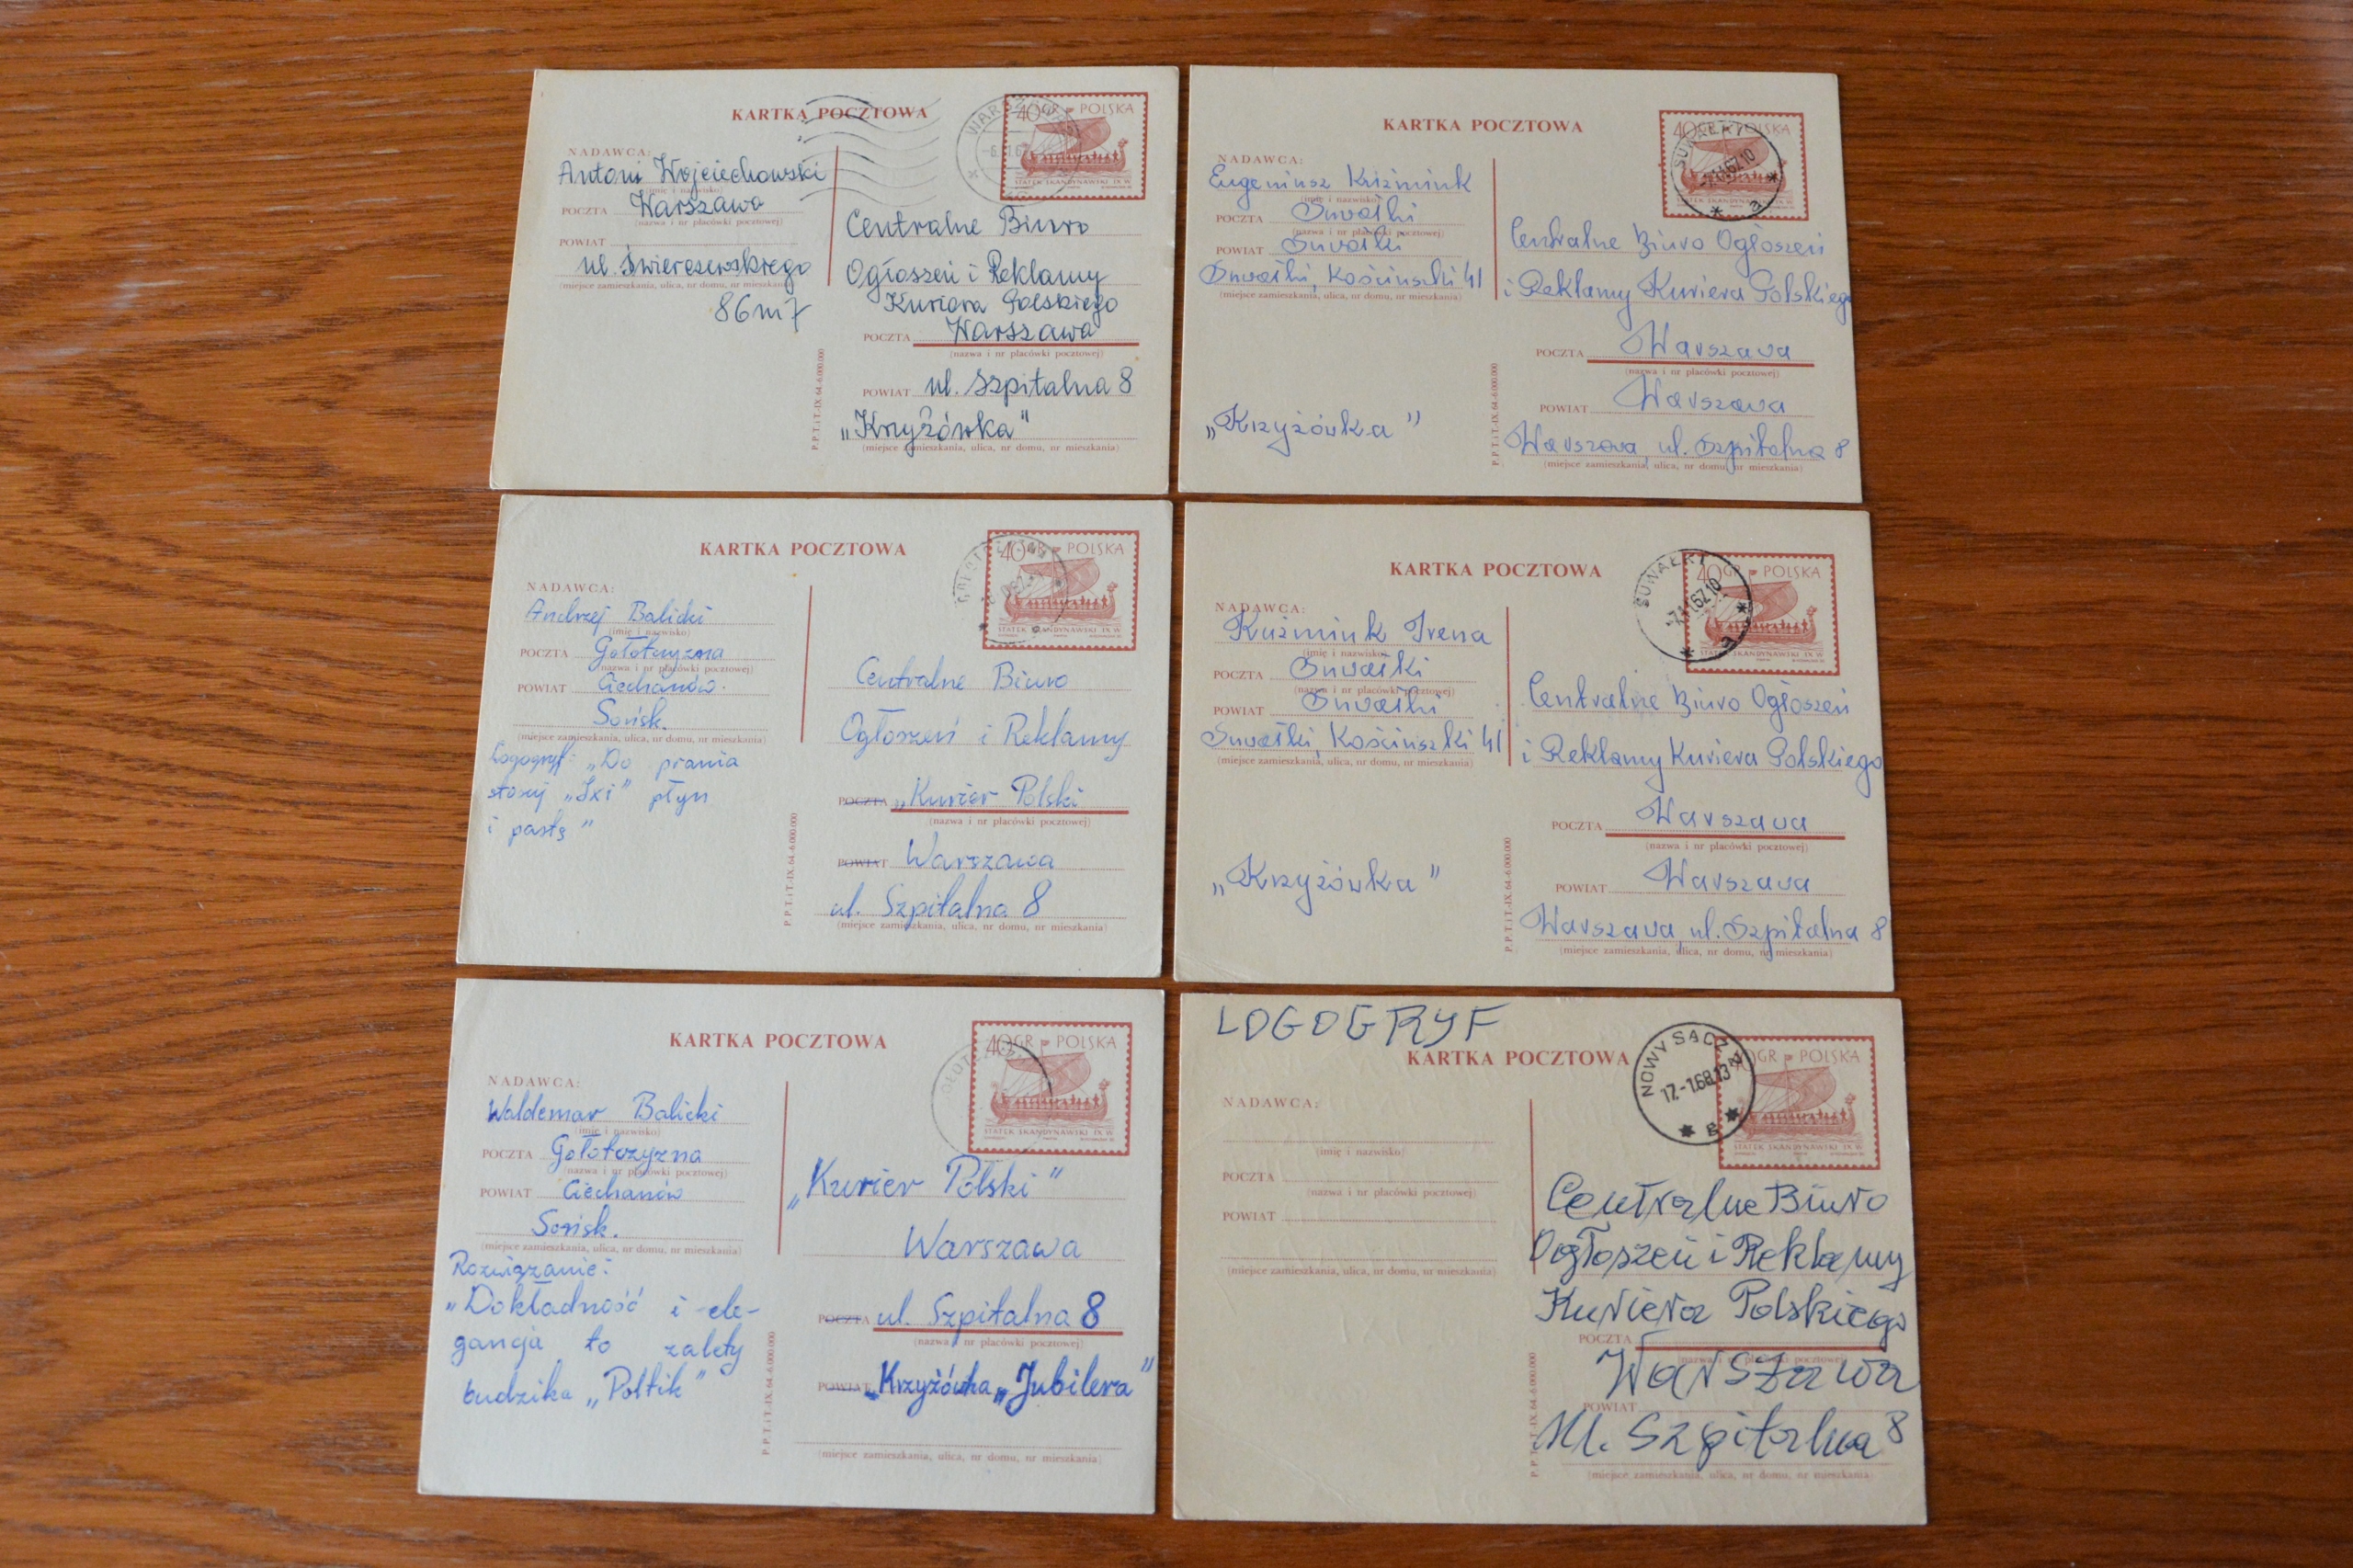 KARTKA POCZTOWA
40GR POLSKA
STATEK SKANDYNAWSKI IX W
WARSZAWA
NADAWCA:
Antoni Wojciechowski
(imię i nazwisko)
POCZTA Warszawa
(nazwa i nr placówki pocztowej)
POWIAT
ul. Świerczewskiego
(miejsce zamieszkania, ulica, nr domu, nr mieszkania)
86 m 7
Centralne Biuro
Ogłoszeń i Reklamy
Kuriera Polskiego
POCZTA Warszawa
(nazwa i nr placówki pocztowej)
POWIAT ul. Szpitalna 8
„Krzyżówka"
(miejsce zamieszkania, ulica, nr domu, nr mieszkania)
P.P.T.i T.-IX.64.-6.000.000
KARTKA POCZTOWA
40GR POLSKA
SUWAŁKI
a
NADAWCA:
Eugeniusz Kuźmiuk
(imię i nazwisko)
POCZTA Suwałki
(nazwa i nr placówki pocztowej)
POWIAT Suwałki
Suwałki, Kościuszki 41
(miejsce zamieszkania, ulica, nr domu, nr mieszkania)
„Krzyżówka"
Centralne Biuro Ogłoszeń
i Reklamy Kuriera Polskiego
POCZTA Warszawa
(nazwa i nr placówki pocztowej)
POWIAT Warszawa
Warszawa, ul. Szpitalna 8
(miejsce zamieszkania, ulica, nr domu, nr mieszkania)
P.P.T.i T.-IX.64.-6.000.000
KARTKA POCZTOWA
40GR POLSKA
STATEK SKANDYNAWSKI IX W
NADAWCA:
Andrzej Balicki
(imię i nazwisko)
POCZTA Gołotczyzna
(nazwa i nr placówki pocztowej)
POWIAT Ciechanów.
Sońsk.
(miejsce zamieszkania, ulica, nr domu, nr mieszkania)
Logogryf: „Do prania
stosuj „Ixi" płyn
i pastę"
Centralne Biuro
Ogłoszeń i Reklamy
POCZTA „Kurier Polski
(nazwa i nr placówki pocztowej)
POWIAT Warszawa
ul. Szpitalna 8
(miejsce zamieszkania, ulica, nr domu, nr mieszkania)
P.P.T.i T.-IX.64.-6.000.000
KARTKA POCZTOWA
40GR POLSKA
STATEK SKANDYNAWSKI IX W
SUWAŁKI
a
NADAWCA:
Kuźmiuk Irena
(imię i nazwisko)
POCZTA Suwałki
(nazwa i nr placówki pocztowej)
POWIAT Suwałki
Suwałki, Kościuszki 41
(miejsce zamieszkania, ulica, nr domu, nr mieszkania)
„Krzyżówka"
Centralne Biuro Ogłoszeń
i Reklamy Kuriera Polskiego
POCZTA Warszawa
(nazwa i nr placówki pocztowej)
POWIAT Warszawa
Warszawa, ul. Szpitalna 8
(miejsce zamieszkania, ulica, nr domu, nr mieszkania)
P.P.T.i T.-IX.64.-6.000.000
KARTKA POCZTOWA
40GR POLSKA
STATEK SKANDYNAWSKI IX W
NADAWCA:
Waldemar Balicki
(imię i nazwisko)
POCZTA Gołotczyzna
(nazwa i nr placówki pocztowej)
POWIAT Ciechanów
Sońsk.
(miejsce zamieszkania, ulica, nr domu, nr mieszkania)
Rozwiązanie:
„Dokładność i ele-
gancja to zalety
budzika „Poltik"
„Kurier Polski"
Warszawa
POCZTA ul. Szpitalna 8
(nazwa i nr placówki pocztowej)
POWIAT „Krzyżówka „Jubilera"
(miejsce zamieszkania, ulica, nr domu, nr mieszkania)
P.P.T.i T.-IX.64.-6.000.000
LOGOGRYF
KARTKA POCZTOWA
GR POLSKA
STATEK SKANDYNAWSKI IX W
NOWY SĄCZ
17.-1.68.13
g
NADAWCA:
(imię i nazwisko)
POCZTA
(nazwa i nr placówki pocztowej)
POWIAT
(miejsce zamieszkania, ulica, nr domu, nr mieszkania)
Centralne Biuro
Ogłoszeń i Reklamy
Kuriera Polskiego
POCZTA
(nazwa i nr placówki pocztowej)
Warszawa
POWIAT
Ul. Szpitalna 8
(miejsce zamieszkania, ulica, nr domu, nr mieszkania)
P.P.T.i T.-IX.64.-6.000.000